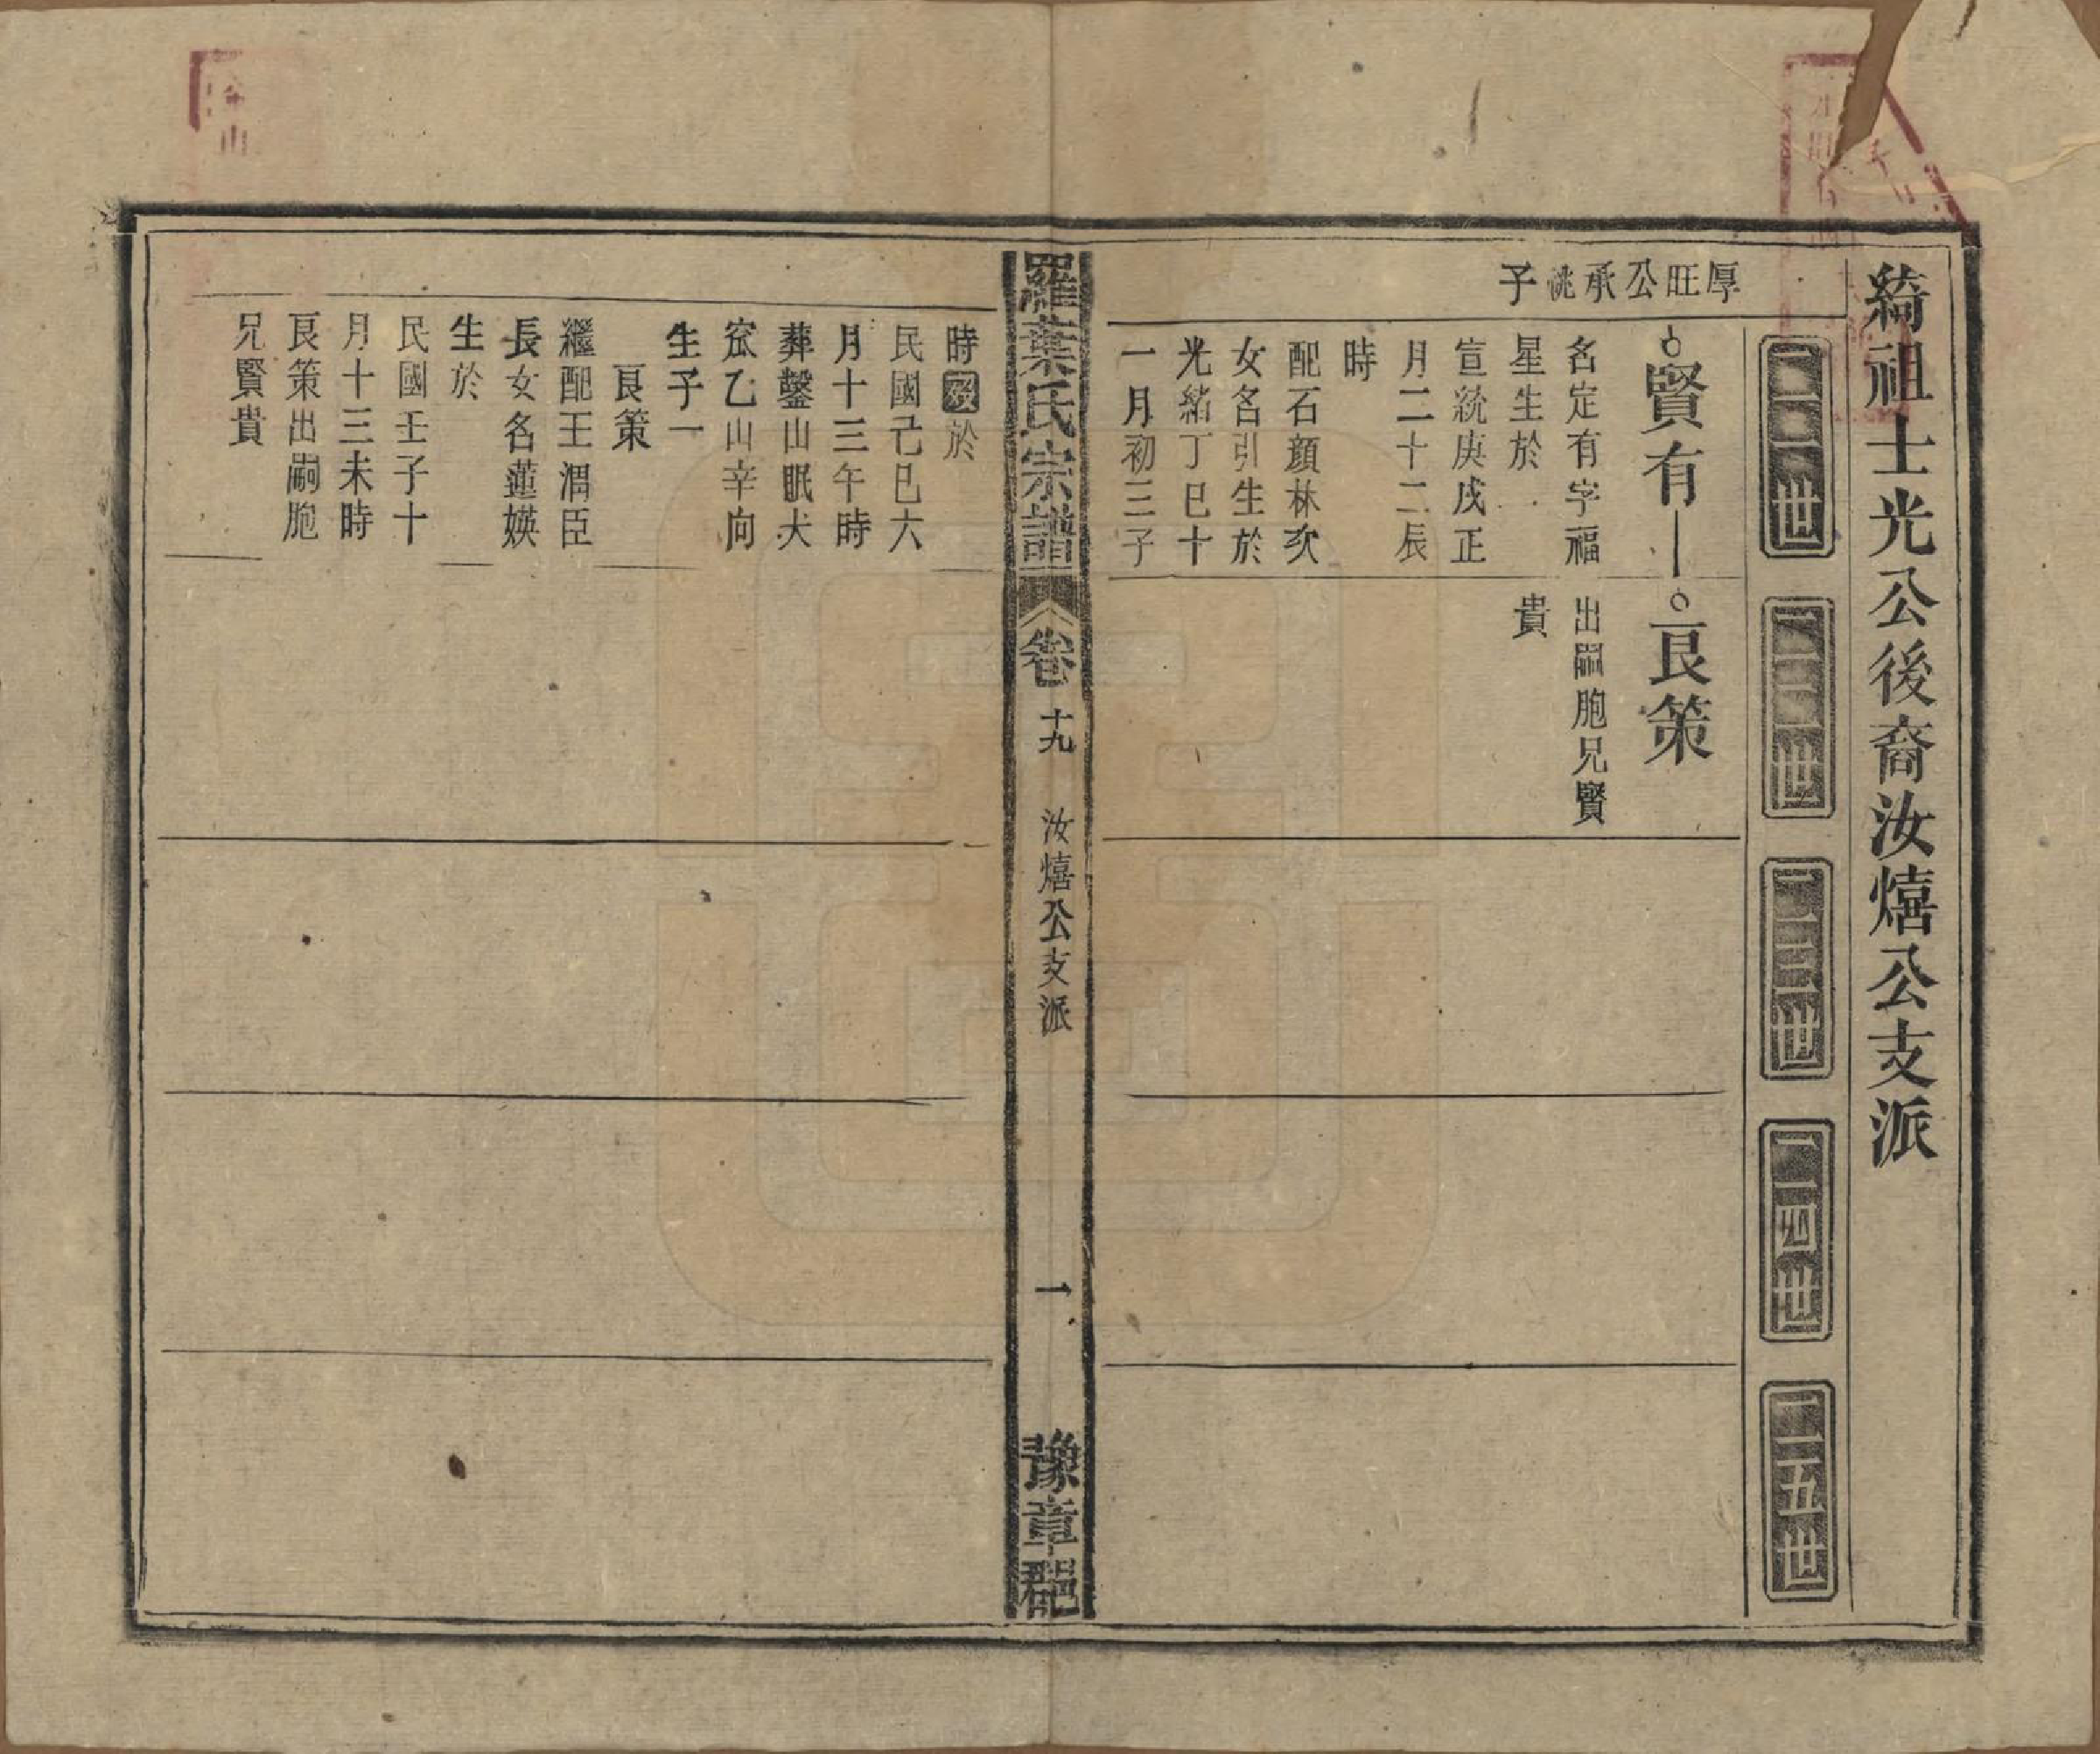 綺祖士光公後裔汝熺公支派
二一世
二二世
二三世
二四世
二五世
厚旺公承祧子
賢有
名定有字福
星生於
宣統庚戌正
月二十二辰
時
配石顏林次
女名引生於
光緒丁巳十
一月初三子
艮策
出嗣胞兄賢
貴
羅葉氏宗譜
卷十九
汝熺公支派
一
豫章郡
時歿於
民國己巳六
月十三午時
葬鑿山眠犬
宻乙山辛向
生子一
艮策
繼配王渭臣
長女名蓮媖
生於
民國壬子十
月十三未時
艮策出嗣胞
兄賢貴